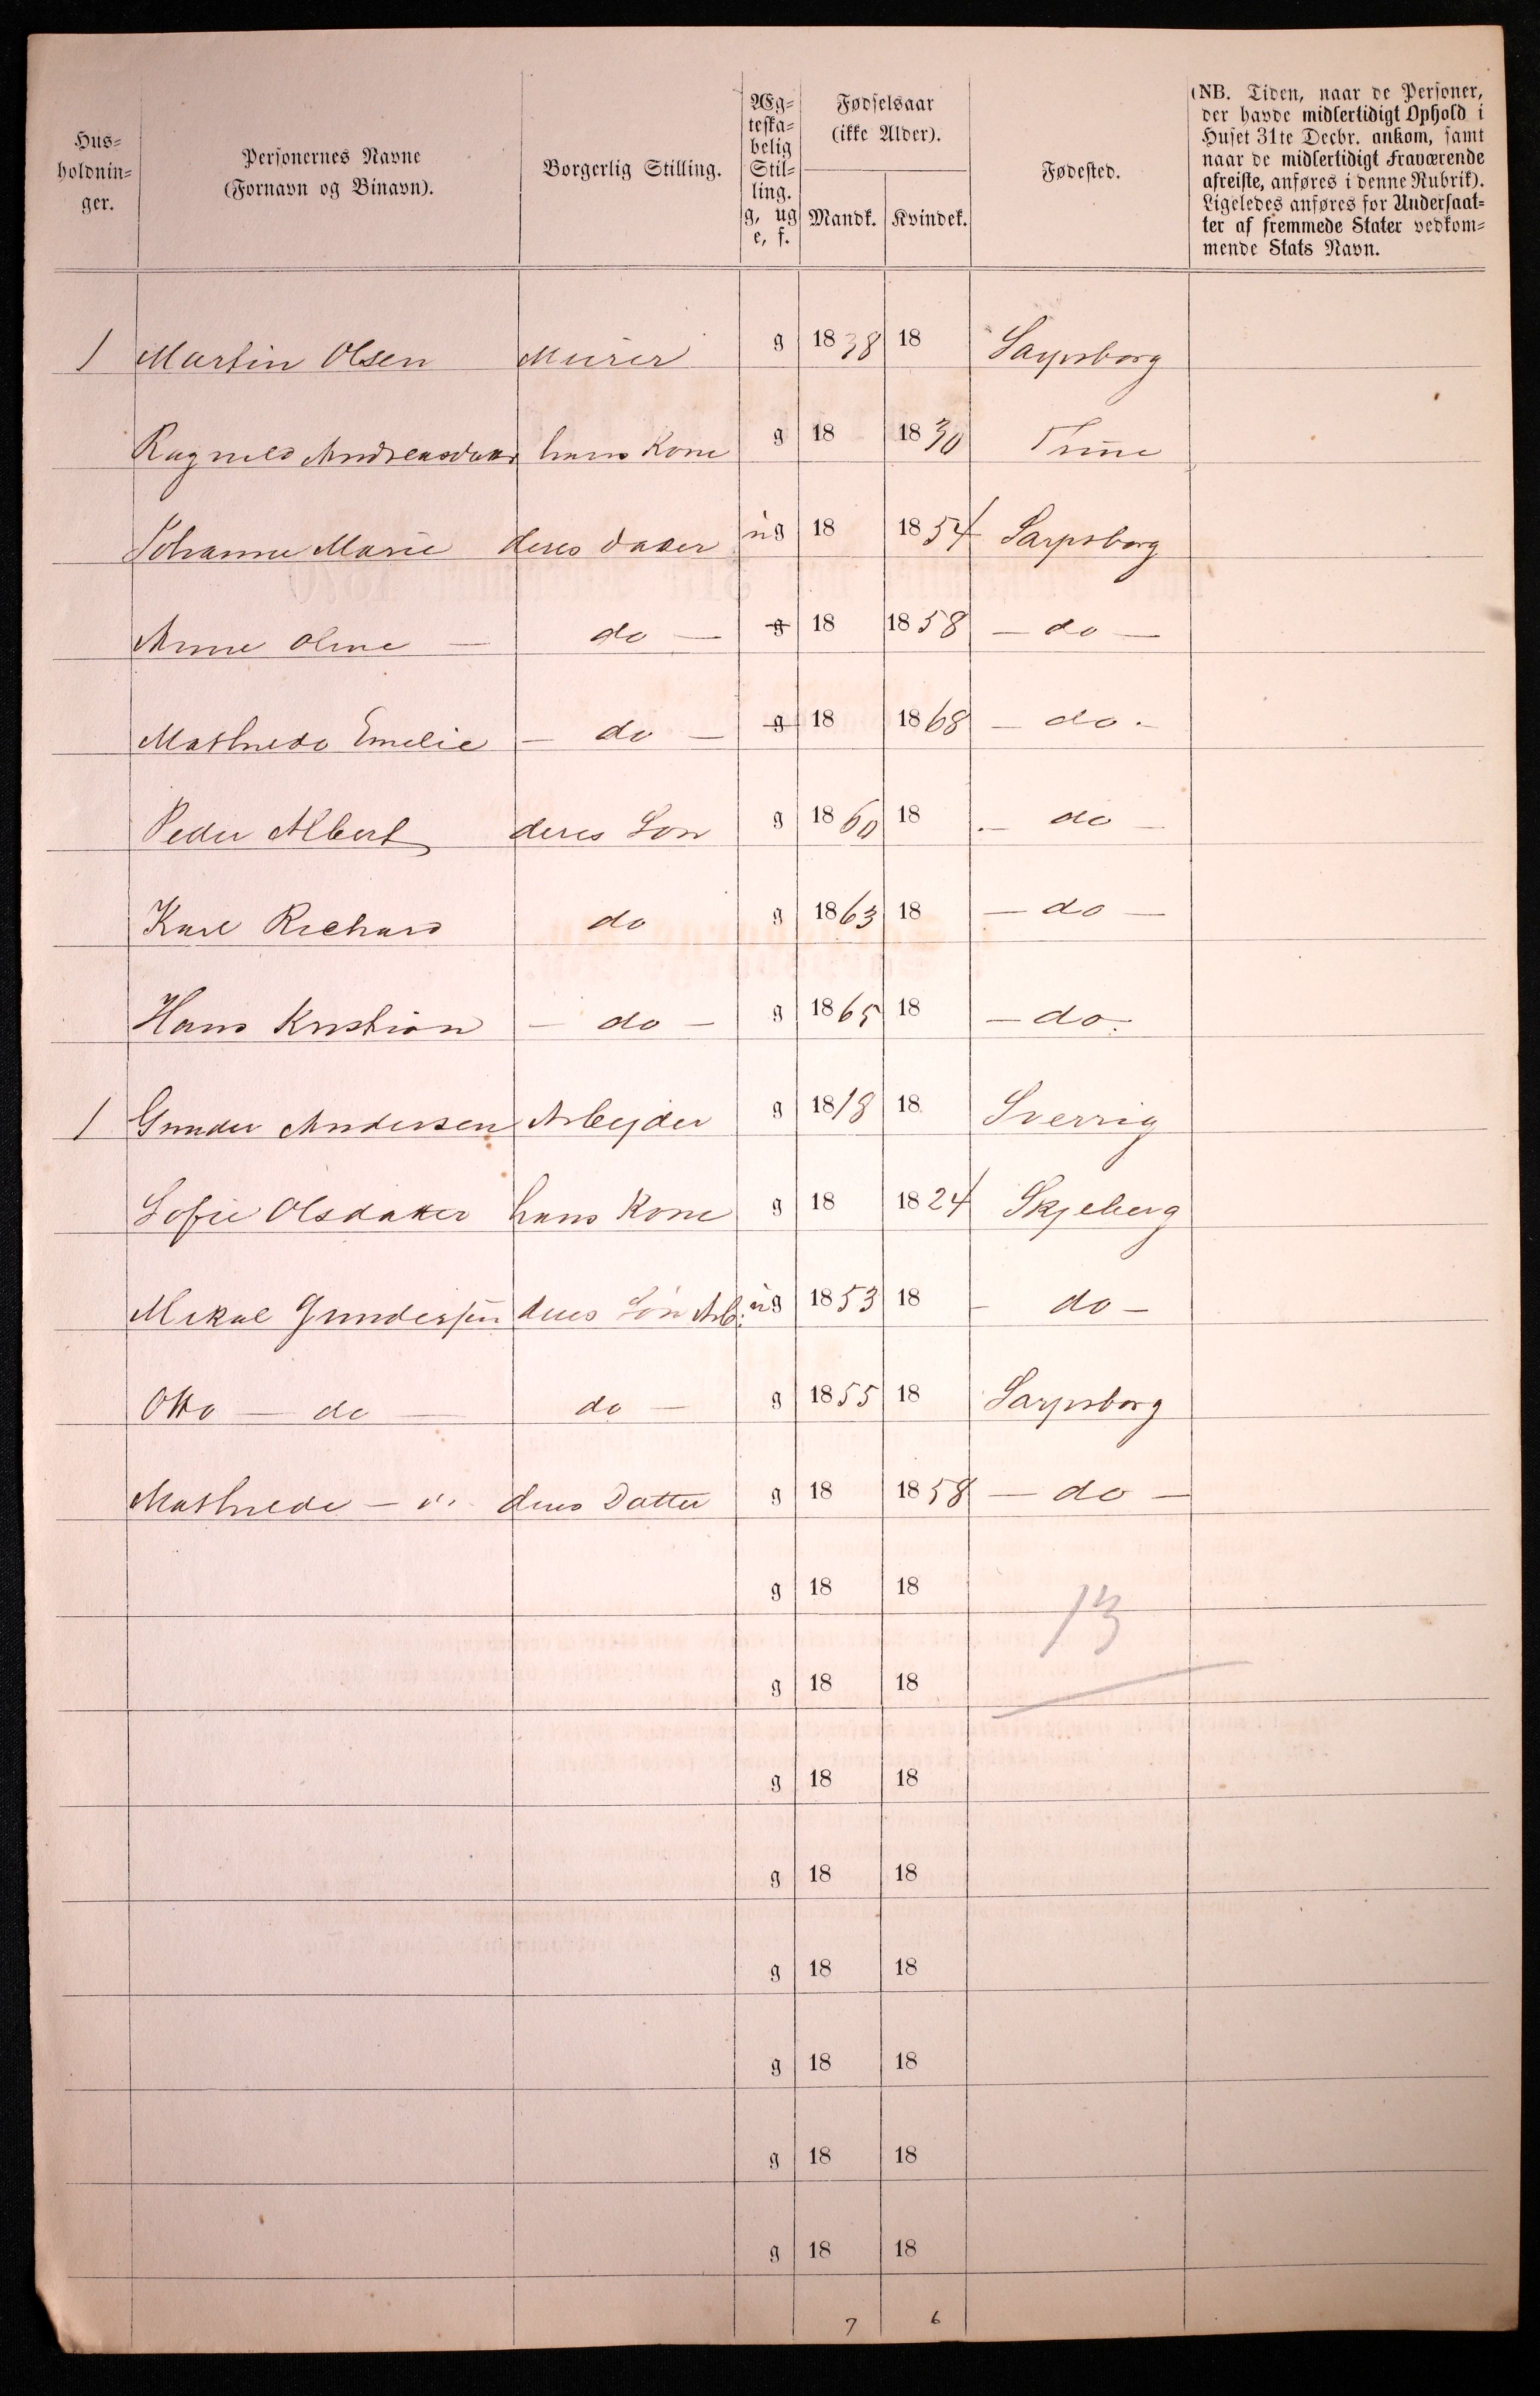 Hus=
holdnin=
ger.
Personernes Navne
(Fornavn og Binavn).
Borgerlig Stilling.
Æg=
teska=
belig
Stil=
ling.
g, ug
e, f.
Fødselsaar
(ikke Alder).
Mandk. Kvindek.
Fødested.
(NB. Tiden, naar de Personer,
der havde midlertidigt Ophold i
Huset 31te Decbr. ankom, samt
naar de midlertidigt Fraværende
afreiste, anføres i denne Rubrik).
Ligeledes anføres for Undersaat=
ter af fremmede Stater vedkom=
mende Stats Navn.
1 Martin Olsen Murer g 1838 18 Sarpsborg
Ragnild Andreasdatter hans Kone g 18 1830 Thune
Johanne Marie deres datter ug 18 1854 Sarpsborg
Anne Oline — do — g 18 1858 — do —
Mathilde Emelie — do — g 18 1868 — do -
Peder Albert deres Søn g 1860 18 — do —
Karl Richard do g 1863 18 — do —
Hans Kristian — do — g 1865 18 — do.
1 Gunder Andersen Arbejder g 1818 18 Sverrig
Sofie Olsdatter hans Kone g 18 1824 Skjeberg
Mikal Gundersen deres Søn Arb: ug 1853 18 - do -
Otto — do — do — g 1855 18 Sarpsborg
Mathilde — " deres Datter g 18 1858 — do —
g 18 18
13
g 18 18
g 18 18
g 18 18
g 18 18
g 18 18
g 18 18
g 18 18
7 6